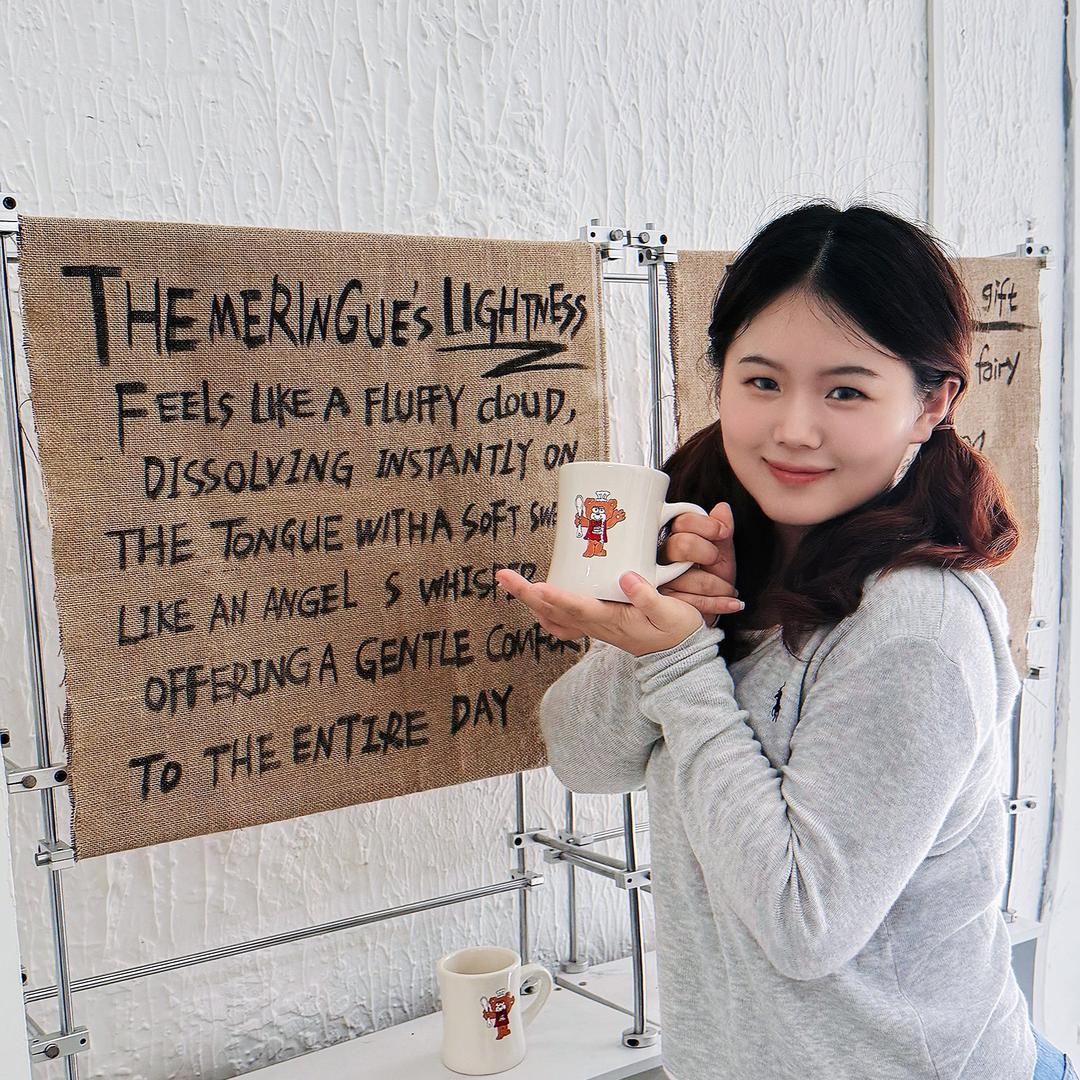 THE MERINGUE'S LIGHTNESS
FEELS LIKE A FLUFFY CLOUD,
DISSOLVING INSTANTLY ON
THE TONGUE WITH A SOFT
LIKE AN ANGEL S
OFFERING A GENTLE
TO THE ENTIRE DAY
gift
fairy